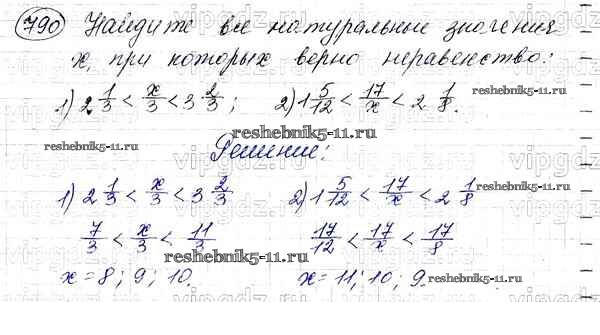 790 Найдите все натуральные значения
x, при которых верно неравенство:
1) 2 1/3 < x/3 < 3 2/3; 2) 1 5/12 < 17/x < 2 1/8.
reshebnik5-11.ru
reshebnik5-11.ru
reshebnik5-11.ru
Решение:
reshebnik5-11.ru
1) 2 1/3 < x/3 < 3 2/3 2) 1 5/12 < 17/x < 2 1/8
7/3 < x/3 < 11/3 17/12 < 17/x < 17/8
reshebnik5-11.ru
x = 8; 9; 10. x = 11; 10; 9.
reshebnik5-11.ru
vipgdz.ru